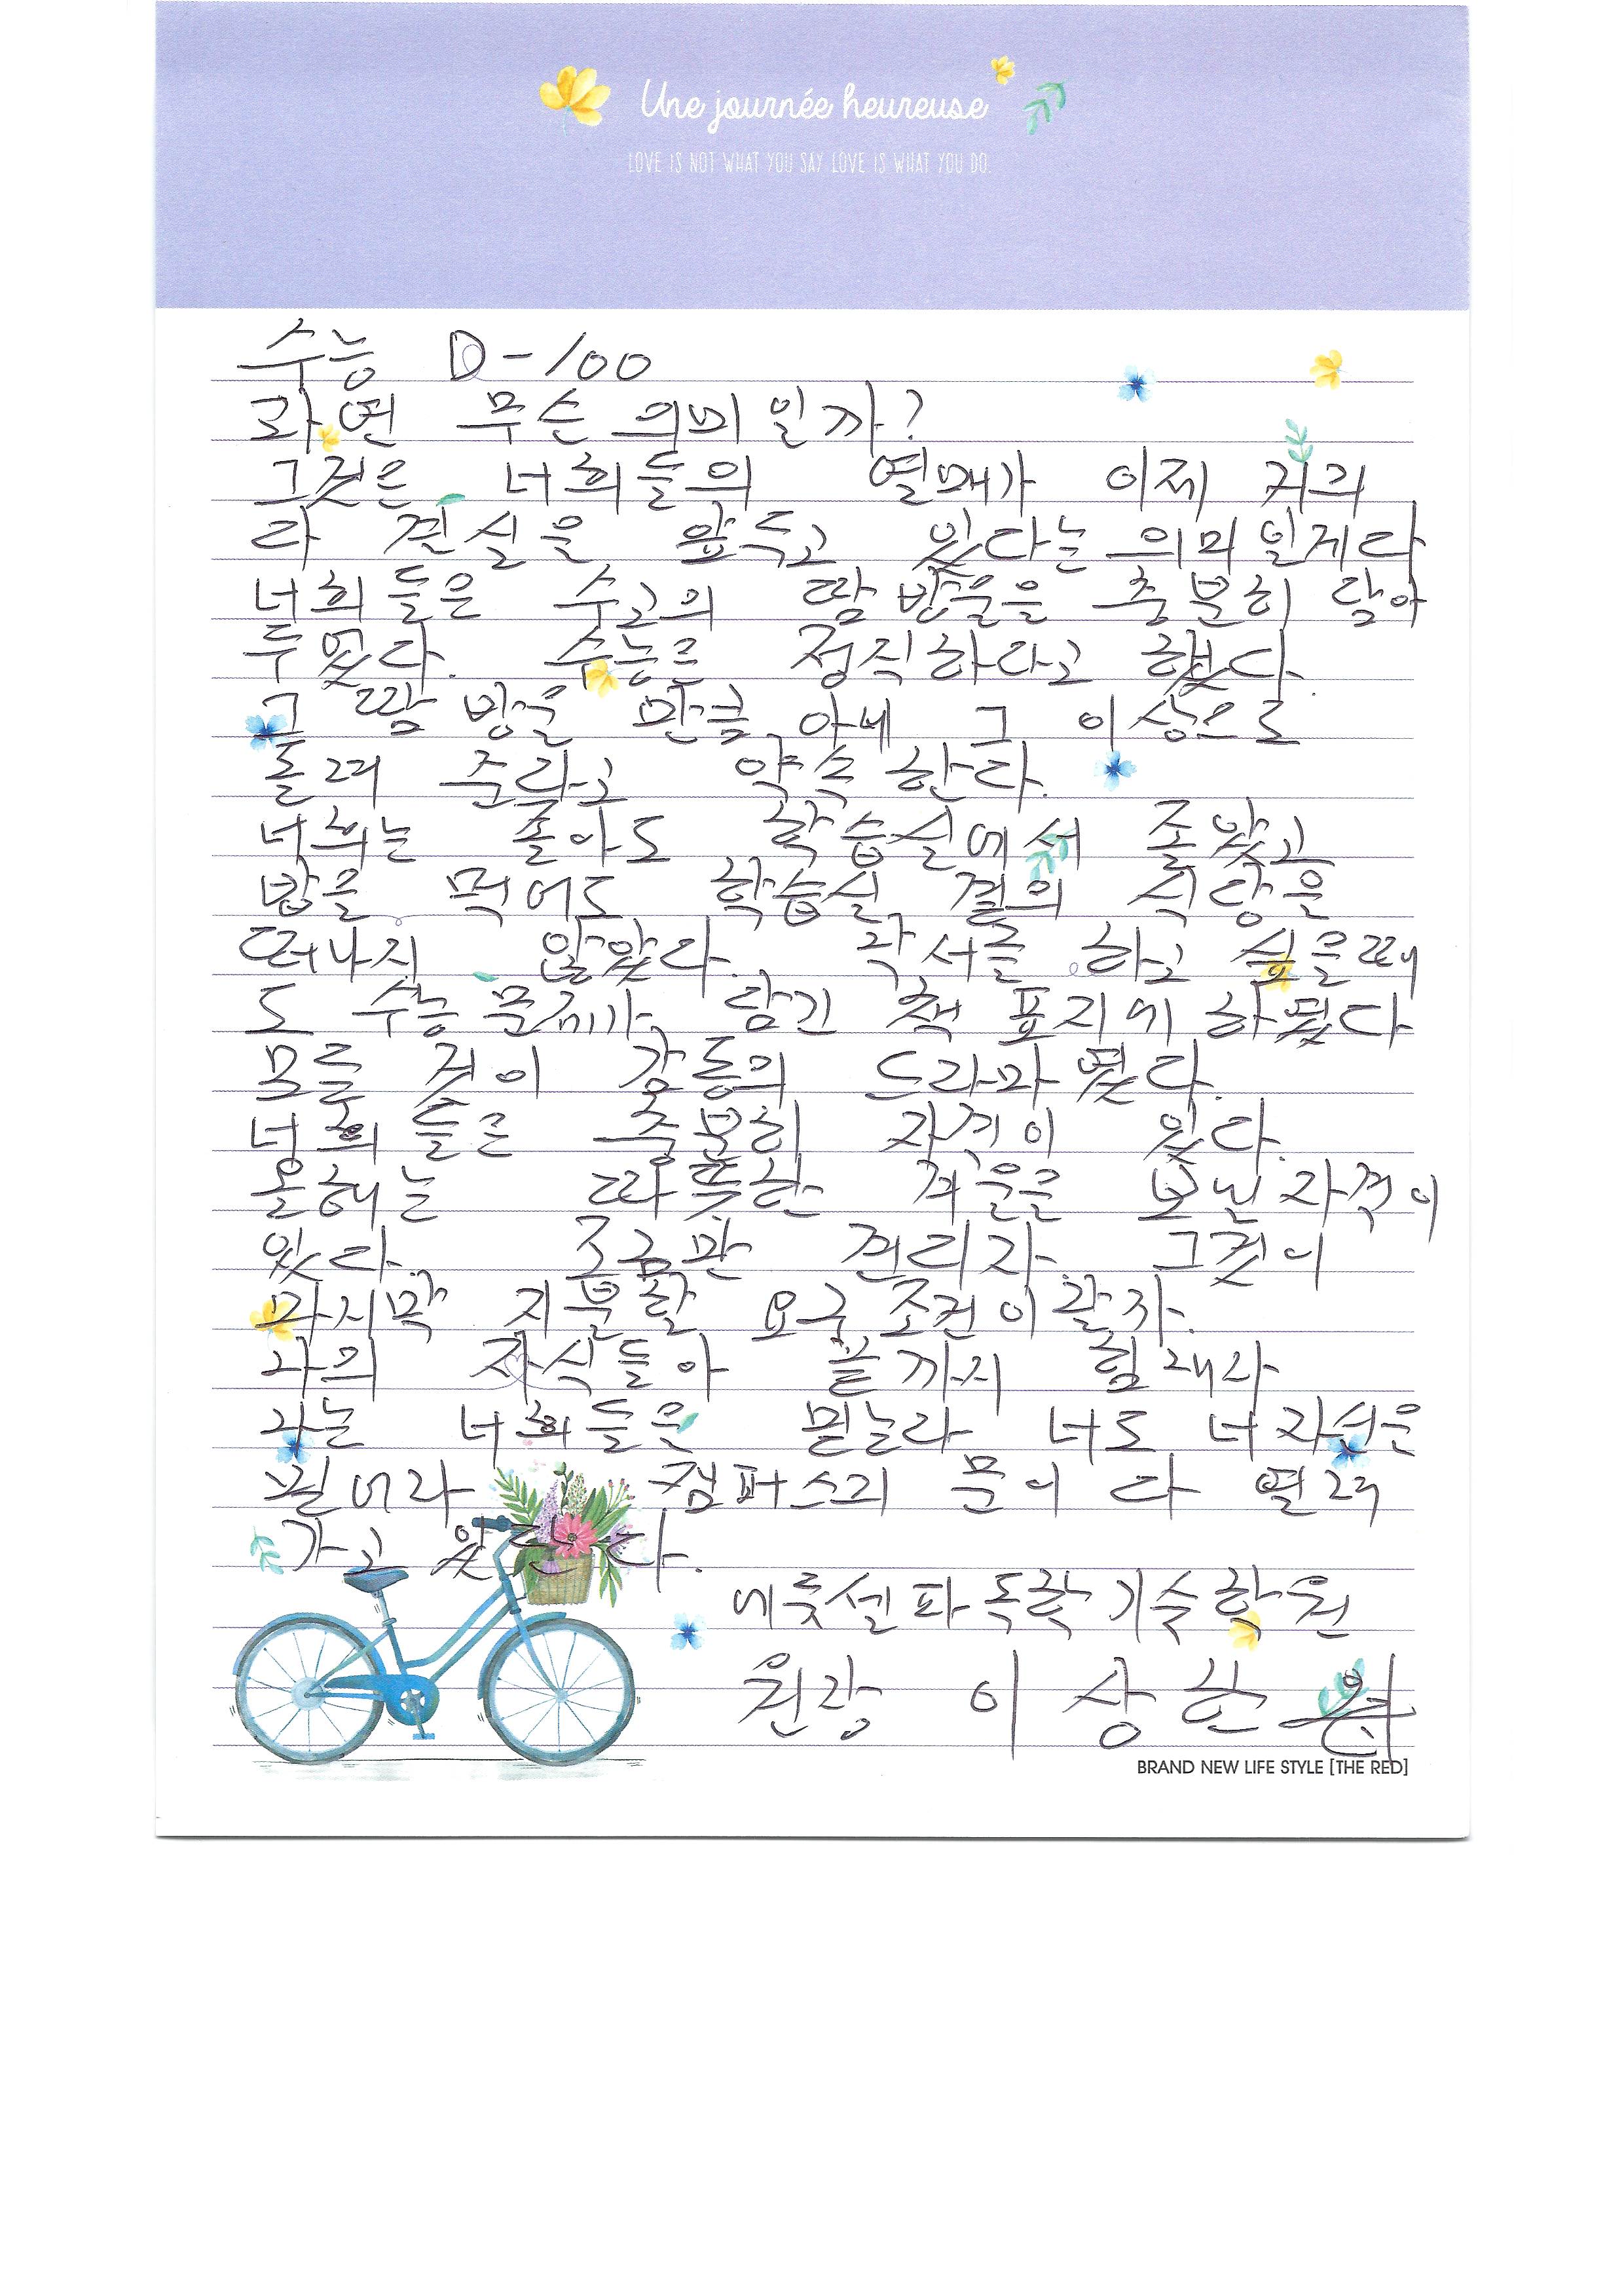 Une journée heureuse
LOVE IS NOT WHAT YOU SAY LOVE IS WHAT YOU DO.
수능 D-100
과연 무슨 의미일까?
그것은 너희들의 열매가 이제 거의
다 결실을 앞두고 있다는 의미일게다
너희들은 수고의 땀방울을 충분히 담아
두었다. 수능은 정직하다고 했다.
그 땀방울 만큼, 아니 그 이상으로
돌려 준다고 약속한다.
너희는 졸아도 학습실에서 졸았고
밥을 먹어도 학습실 곁의 식당을
떠나지 않았다. 낙서를 하고 싶을때
도 수능 문제가 담긴 책 표지에 하였다
모든 것이 감동의 드라마였다.
너희들은 충분히 자격이 있다.
올해는 따뜻한 겨울을 보낼 자격이
있다. 조금만 견디자. 그것이
마지막 지불할 요구 조건이란다.
나의 자식들아 끝까지 힘내라
나는 너희들을 믿는다 너도 너 자신을
믿어라 캠퍼스의 문이 다 열려
가고 있단다.
에듀셀파독학기숙학원
원장 이상헌
BRAND NEW LIFE STYLE [THE RED]